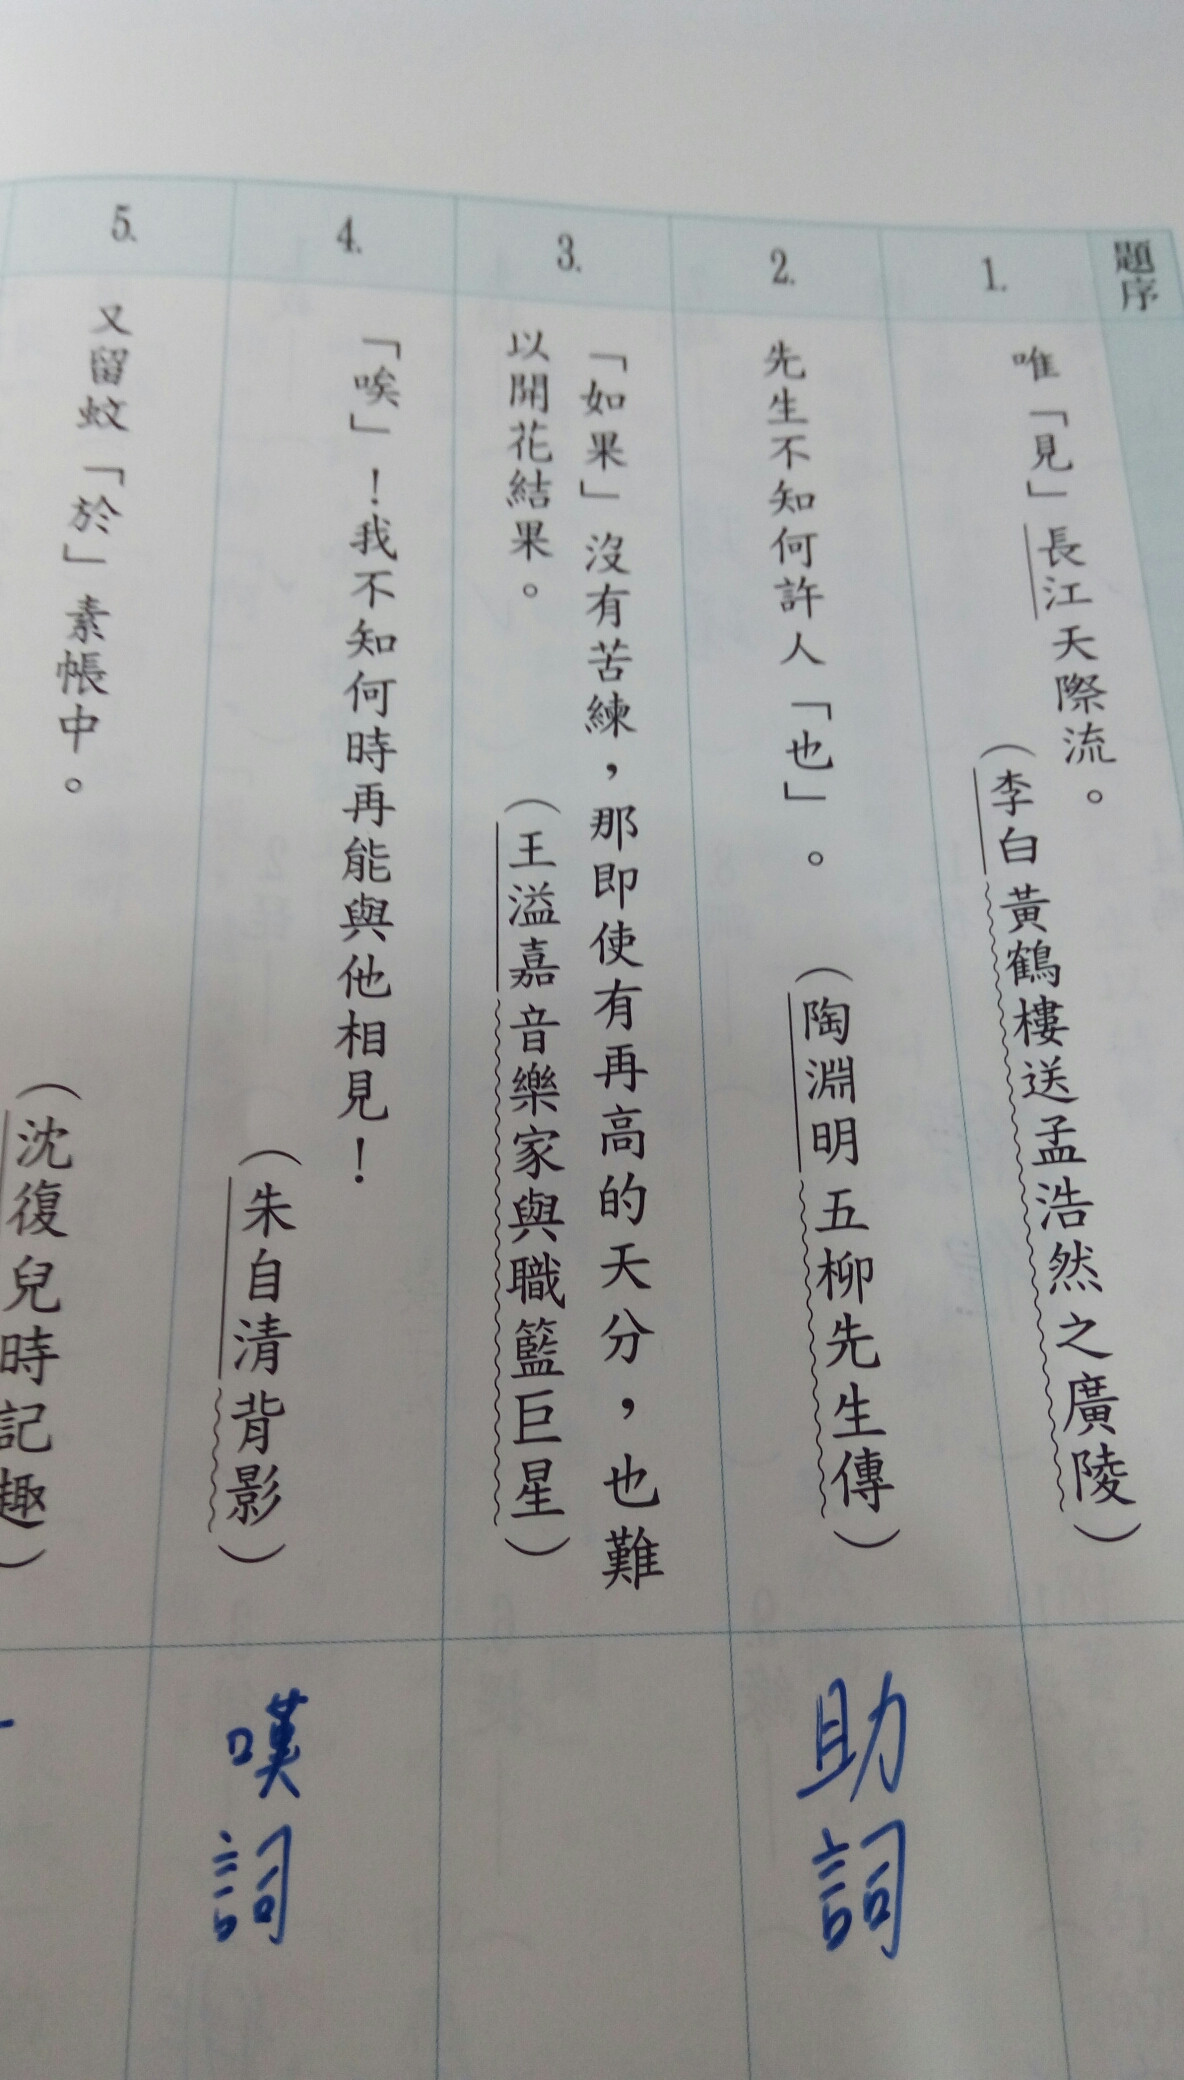 題序
1.
唯「見」長江天際流。
（李白黃鶴樓送孟浩然之廣陵）
2.
先生不知何許人「也」。
（陶淵明五柳先生傳）
助詞
3.
「如果」沒有苦練，那即使有再高的天分，也難
以開花結果。
（王溢嘉音樂家與職籃巨星）
4.
「唉」！我不知何時再能與他相見！
（朱自清背影）
嘆詞
5.
又留蚊「於」素帳中。
（沈復兒時記趣）